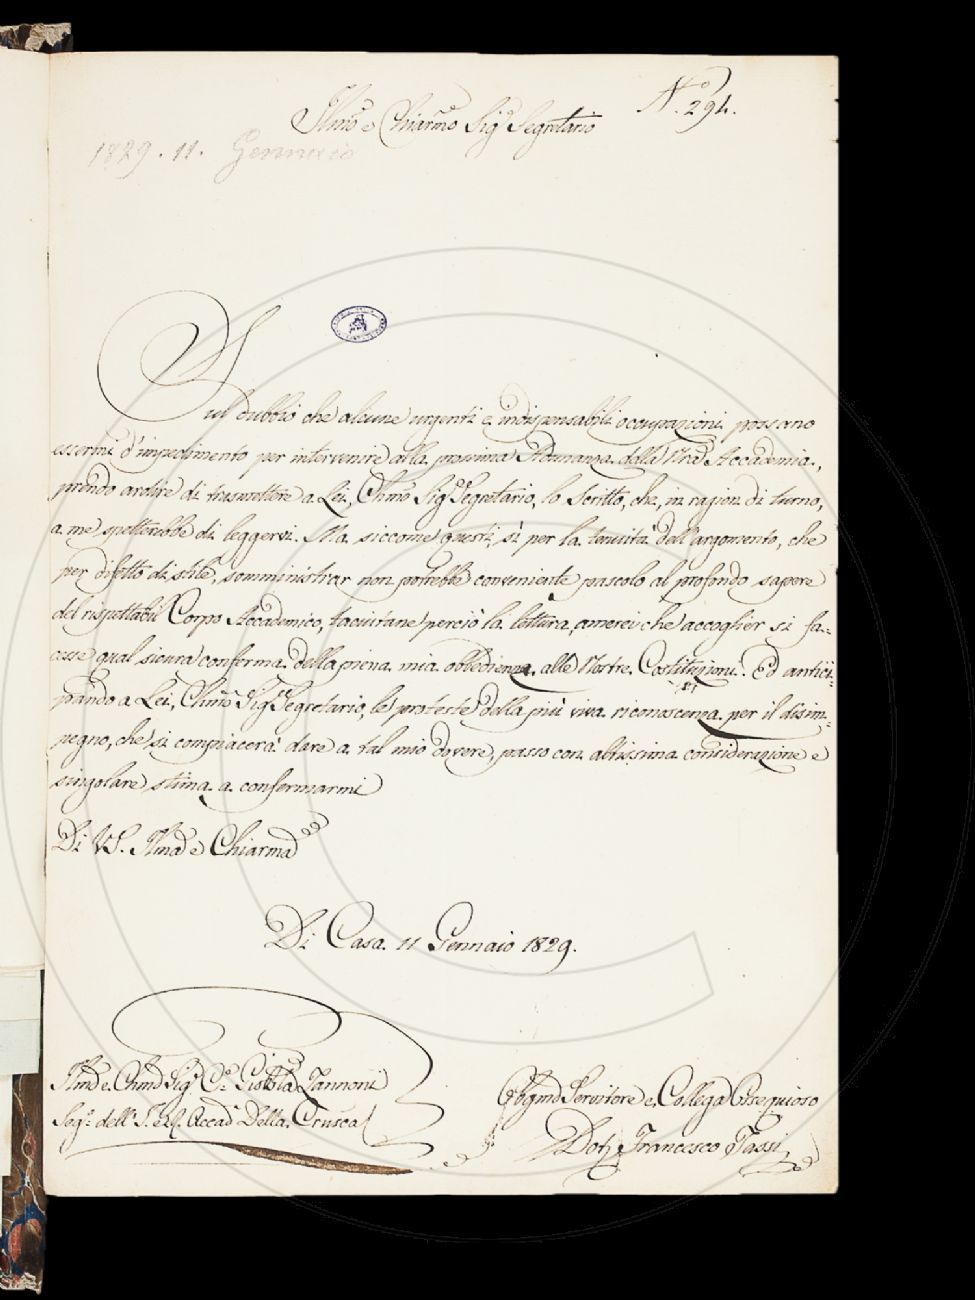 N.° 294.
Illmo e Chiarmo Sigr Segretario
1829. 11. Gennaio
Sul dubbio che alcune urgenti e indispensabili occupazioni possano
essermi d'impedimento per intervenire alla prossima Adunanza della Nra Accademia,
prendo ardire di trasmettere a Lei, Chmo Sigr Segretario, lo Scritto, che, in ragion di turno,
a me spetterebbe di leggervi. Ma siccome questi, sì per la tenuità dell'argomento, che
per difetto di stile, somministrar non potrebbe conveniente pascolo al profondo sapere
del rispettabil Corpo Accademico, tacuitane perciò la lettura, amerei che accoglier si fa-
cesse qual sicura conferma della piena mia obbedienza alle Nostre Costituzioni. Ed antici-
pando a Lei, Chmo Sigr Segretario, le proteste della più viva riconoscenza per il disim-
pegno, che si compiacerà dare a tal mio dovere, passo con altissima considerazione e
singolare stima a confermarmi
Di VS. Illma e Chiarma
Di Casa 11 Gennaio 1829.
Illmo e Chmo Sigr Zannoni
Segr. dell' I. e R. Accad. Della Crusca
Obbgmo Servitore e Collega Ossequioso
Dott. Francesco Tassi